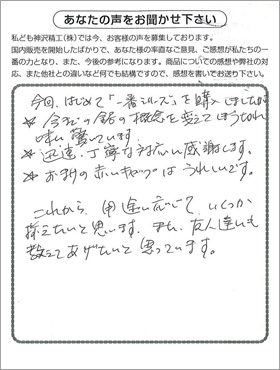 あなたの声をお聞かせ下さい
私ども神沢精工(株)では今、お客様の声を募集しております。
国内販売を開始したばかりで、あなた様の率直なご意見、ご感想が私たちの一
番の力となり、また、今後の参考になります。商品についての感想や弊社の対
応、また他社との違いなど何でも結構ですので、感想を書いてお送り下さい。
今回、はじめて「一番シリーズ」を購入しましたが
※ 今までの の概念を変えてしまう切れ
味に驚いています。
※ 迅速、丁寧な対応に感謝します。
※ おまけの赤いキャップはうれしいです。
これから、用途に応じて、いくつか
揃えたいと思います。また、友人達にも
教えてあげたいと思っています。